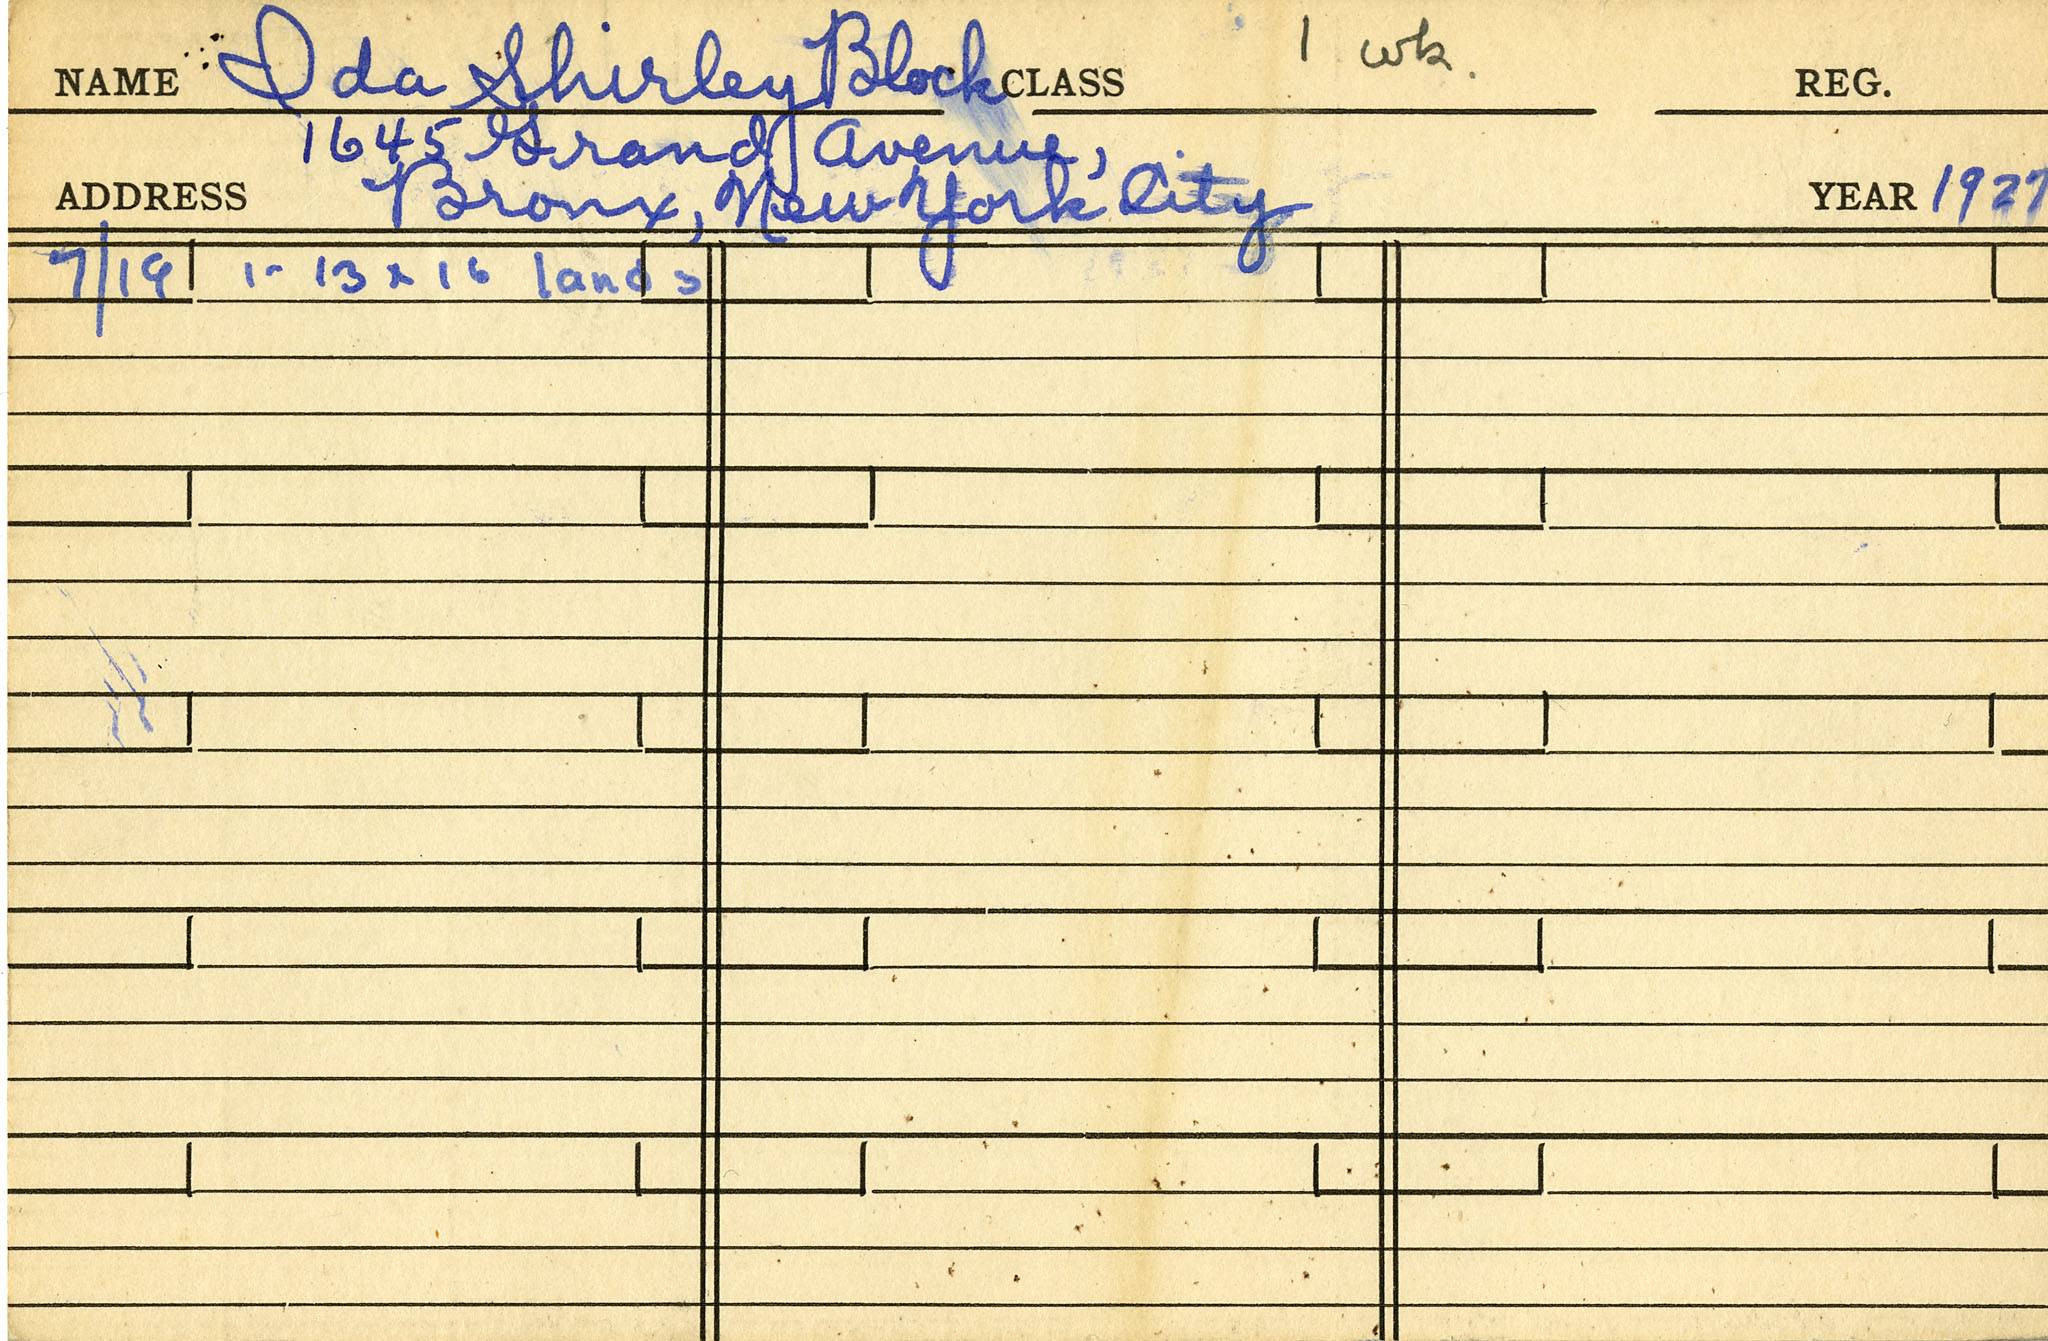 NAME Ida Shirley Block CLASS 1 wk. REG.
1645 Grand Avenue,
ADDRESS Bronx, New York City YEAR 1927
7/19 1- 13 x 16 lands